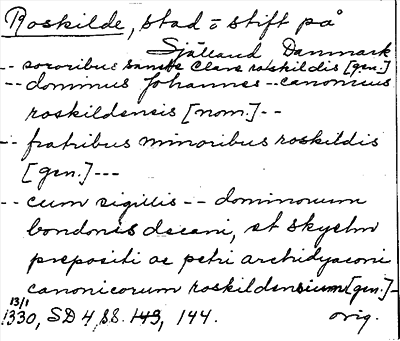 Roskilde, stad = stift på
Sjælland Danmark
-- sororibus sancte Clare roskildis [gen.]
-- dominus Johannes -- canonicus
roskildensis [nom.] --
-- fratribus minoribus roskildis
[gen.] ---
-- cum sigillis -- dominorum
bondonis decani, et skyelm
prepositi ac petri archidyaconi
canonicorum roskildensium [gen.] -
13/1
1330, SD 4, s. 143, 144. orig.